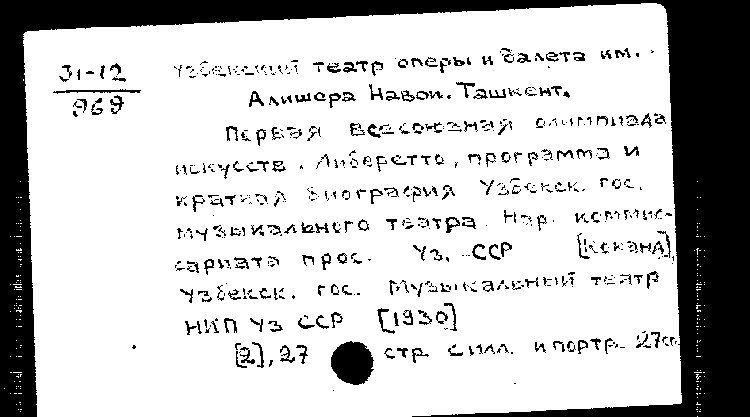 31-12
969
Узбекский театр оперы и балета им.
Алишера Навои. Ташкент.
Первая всесоюзная олимпиада
искусств. Либретто, программа и
краткая биография Узбекск. гос.
музыкального театра Нар. коммис-
сариата прос. Уз. ССР [Коканд],
Узбекск. гос. музыкальный театр
НКП Уз ССР [1930]
[2], 27 стр. с илл. и портр. 27см